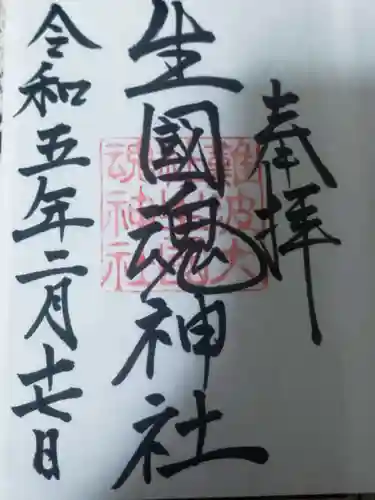 奉拝
生國魂神社
令和五年二月十七日